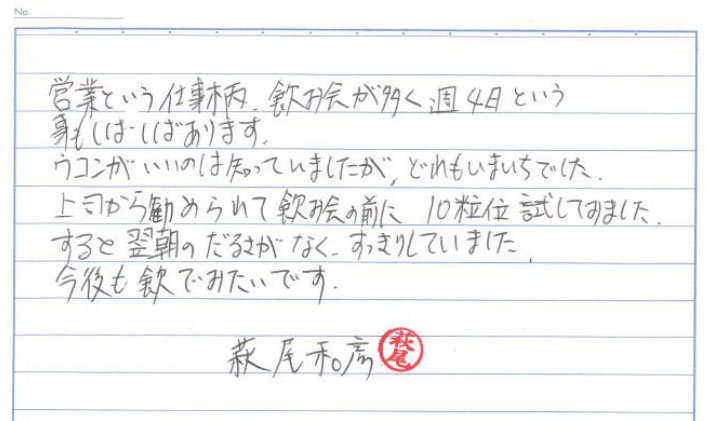 No.
営業という仕事柄、飲み会が多く週4日という
事もしばしばあります。
ウコンがいいのは知っていましたが、どれもいまいちでした。
上司から勧められて飲み会の前に10粒位試してみました。
すると翌朝のだるさがなく、すっきりしていました。
今後も飲でみたいです。
萩尾和彦
萩尾